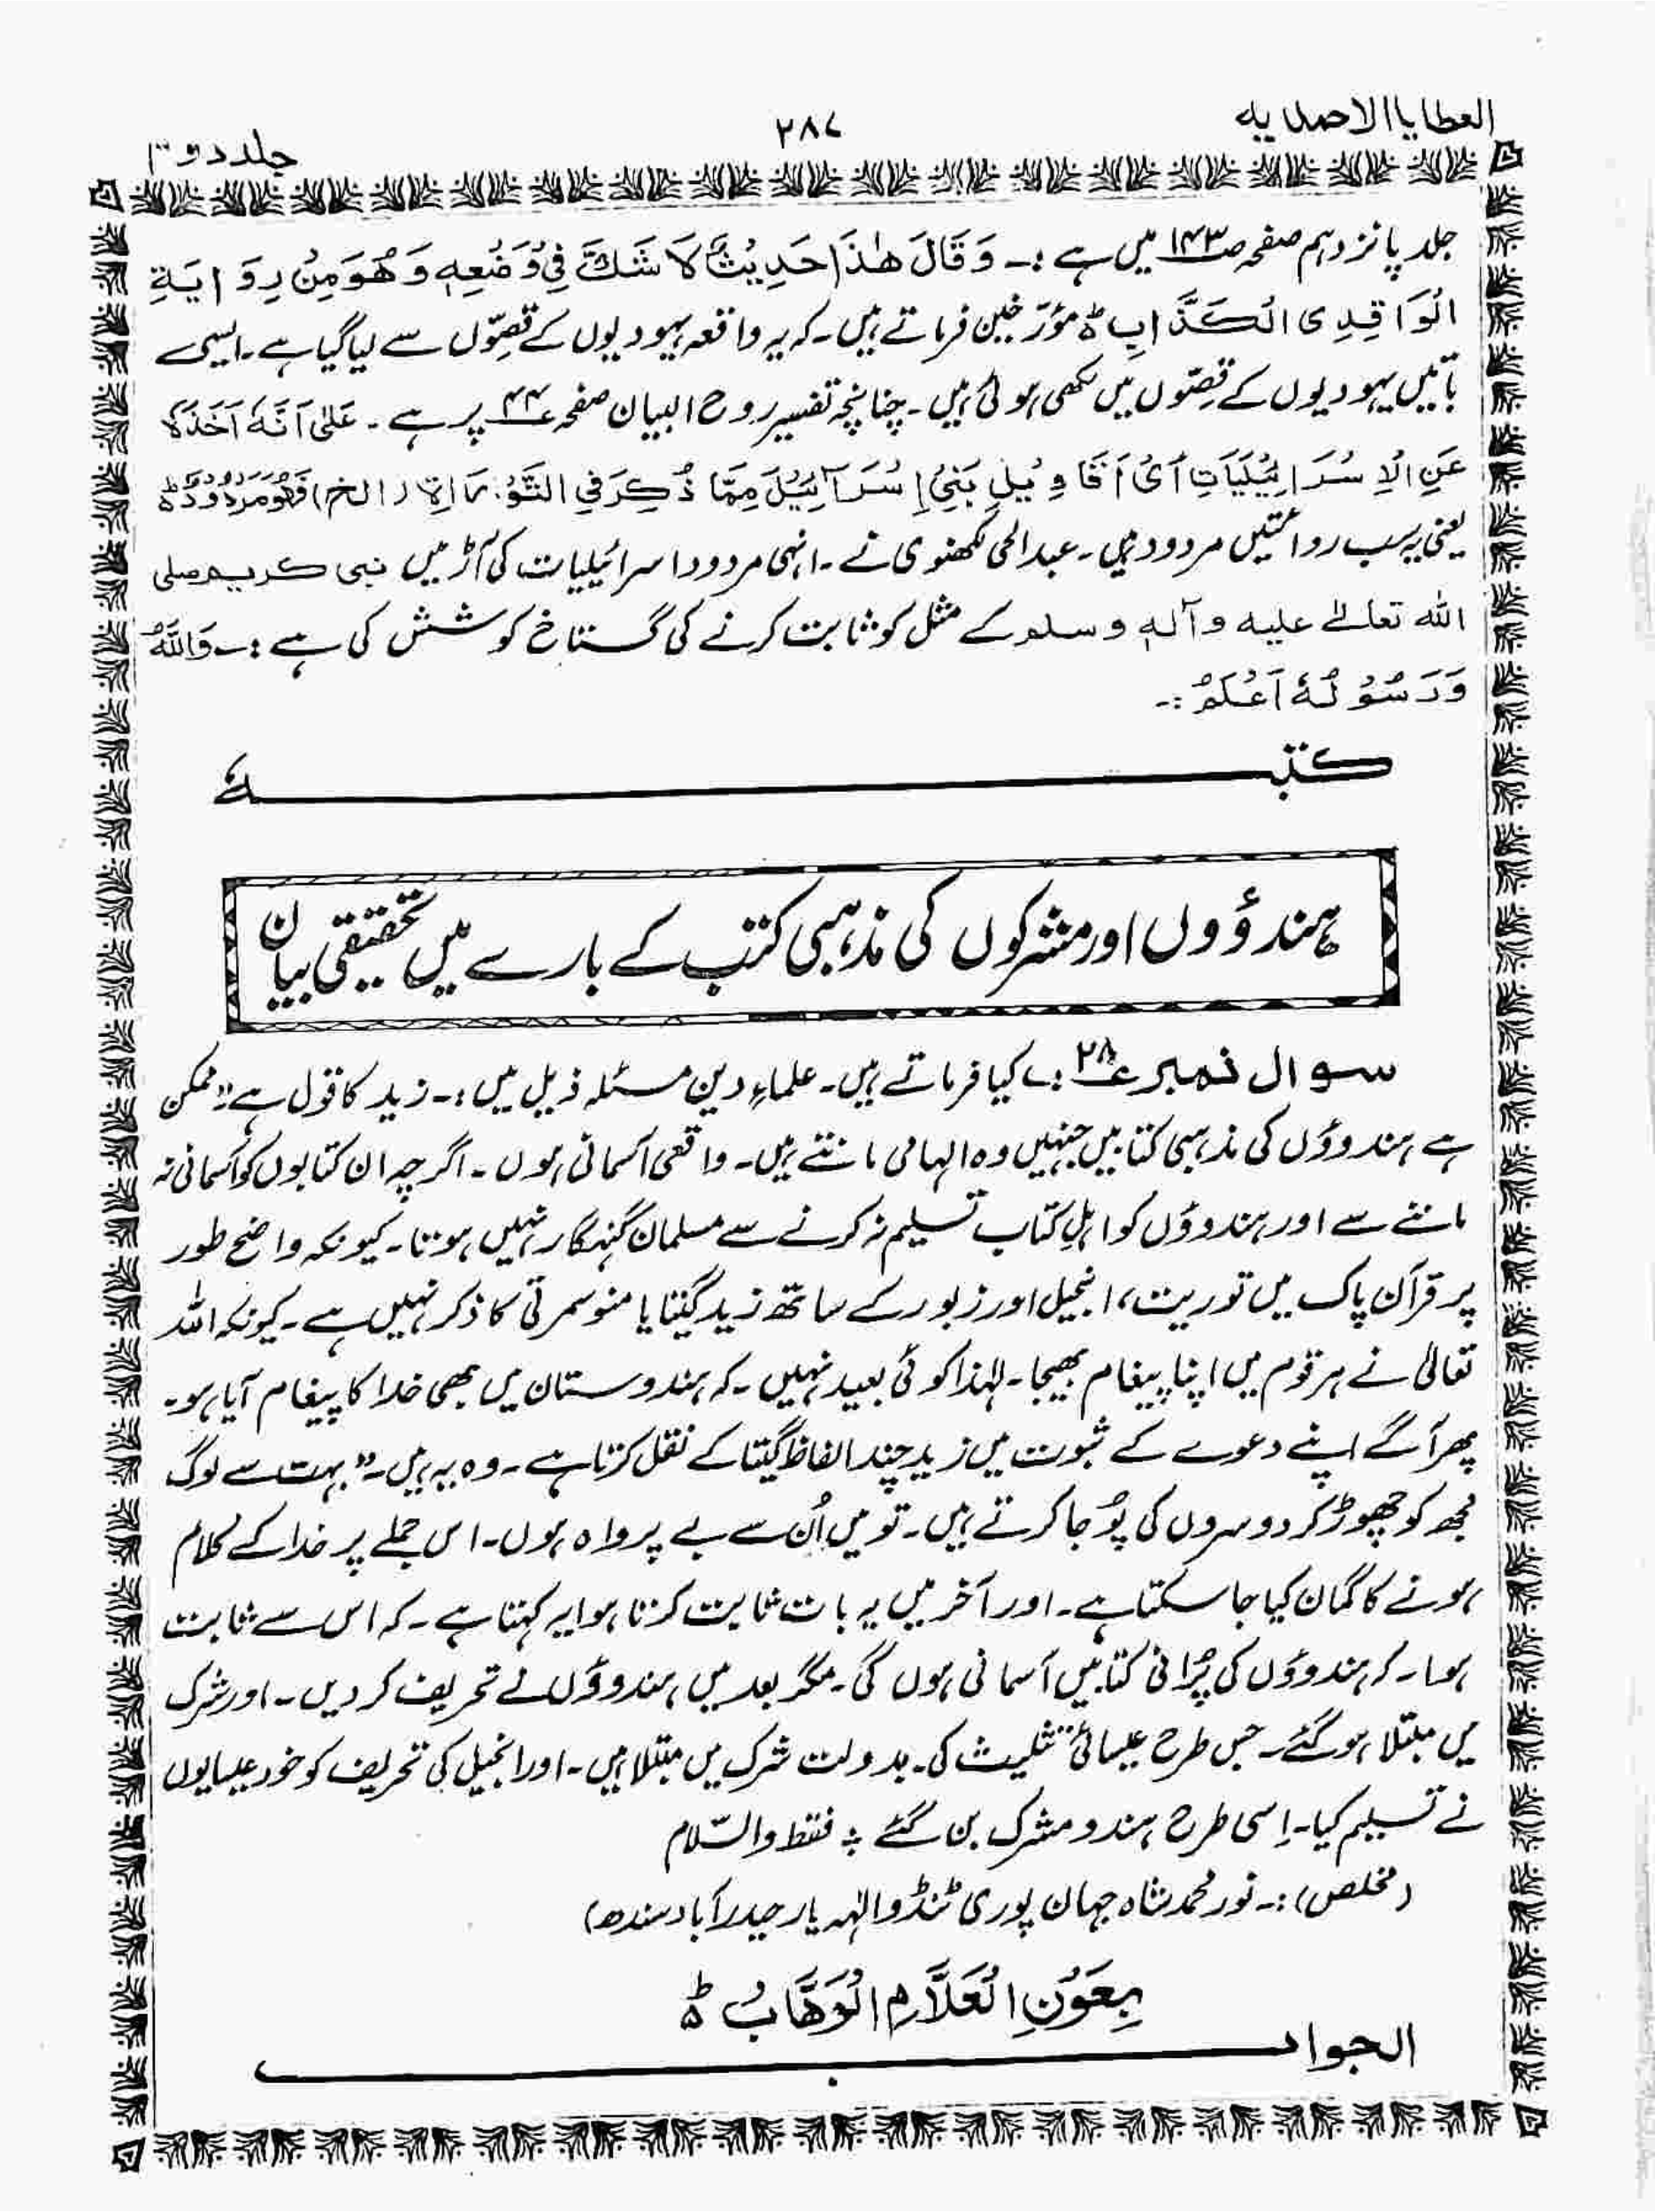 العطایا الاحمدیہ
۲۸۷
جلد دوم
جلد پانزدہم صفحہ ص۱۴۳ میں ہے :۔ وَقَالَ هٰذَا حَدِيْثٌ لَا شَكَّ فِيْ وَضْعِهٖ وَهُوَ مِنْ رِوَايَةِ
الْوَاقِدِي الْكَذَّابِ ط مؤرّخین فرماتے ہیں۔ کہ یہ واقعہ یہودیوں کے قصّوں سے لیا گیا ہے۔ ایسی
باتیں یہودیوں کے قصّوں میں لکھی ہوئی ہیں۔ چنانچہ تفسیر روح البیان صفحہ ع۴۴ پر ہے۔ عَلٰى اَنَّهٗ اَخَذَهٗ
عَنِ الْاِسْرَائِيْلِيَاتِ اَىْ اَقَاوِيْلِ بَنِيْ اِسْرَآئِيْلَ مِمَّا ذُكِرَ فِي التَّوْرَاةِ (الخ) فَهُوَ مَرْدُوْدٌ ط
یعنی یہ سب روائتیں مردود ہیں۔ عبدالحی لکھنوی نے۔ انہی مردود اسرائیلیات کی آڑ میں نبی کریم صلی
اللہ تعالےٰ علیہ وآلہٖ وسلم کے مثل کو ثابت کرنے کی گستاخ کوشش کی ہے :۔ وَاللّٰهُ
وَرَسُوْلُهٗ اَعْلَمُ :۔
کتبہٗ
ہندؤوں اور مشرکوں کی مذہبی کتب کے بارے میں تحقیقی بیان
سوال نمبر ع۲۸ :۔ کیا فرماتے ہیں۔ علماءِ دین مسئلہ ذیل میں :۔ زید کا قول ہے "ممکن
ہے ہندوؤں کی مذہبی کتابیں جنہیں وہ الہامی مانتے ہیں۔ واقعی آسمانی ہوں۔ اگرچہ ان کتابوں کو آسمانی نہ
ماننے سے اور ہندوؤں کو اہلِ کتاب تسلیم نہ کرنے سے مسلمان گنہگار نہیں ہوتا۔ کیونکہ واضح طور
پر قرآن پاک میں توریت، انجیل اور زبور کے ساتھ زید گیتا یا منوسمرتی کا ذکر نہیں ہے۔ کیونکہ اللہ
تعالیٰ نے ہر قوم میں اپنا پیغام بھیجا۔ لہٰذا کوئی بعید نہیں۔ کہ ہندوستان میں بھی خدا کا پیغام آیا ہو۔
پھر آگے اپنے دعوے کے ثبوت میں زید چند الفاظ گیتا کے نقل کرتا ہے۔ وہ یہ ہیں۔ "بہت سے لوگ
مجھ کو چھوڑ کر دوسروں کی پُوجا کرتے ہیں۔ تو میں اُن سے بے پرواہ ہوں۔ اس جملے پر خدا کے کلام
ہونے کا گمان کیا جا سکتا ہے۔ اور آخر میں یہ بات ثابت کرتا ہوا یہ کہتا ہے۔ کہ اس سے ثابت
ہوا۔ کہ ہندوؤں کی پُرانی کتابیں آسمانی ہوں گی۔ مگر بعد میں ہندوؤں نے تحریف کر دیں۔ اور شرک
میں مبتلا ہو گئے۔ جس طرح عیسائی تثلیث کی۔ بدولت شرک میں مبتلا ہیں۔ اور انجیل کی تحریف کو خود عیسایوں
نے تسلیم کیا۔ اِسی طرح ہندو مشرک بن گئے ؛ فقط والسّلام
(مخلص) :۔ نور محمد شاہ جہان پوری ٹنڈو الٰہہ یار حیدر آباد سندھ)
بِعَوْنِ الْعَلَّامِ الْوَهَّابُ ط
الجواب